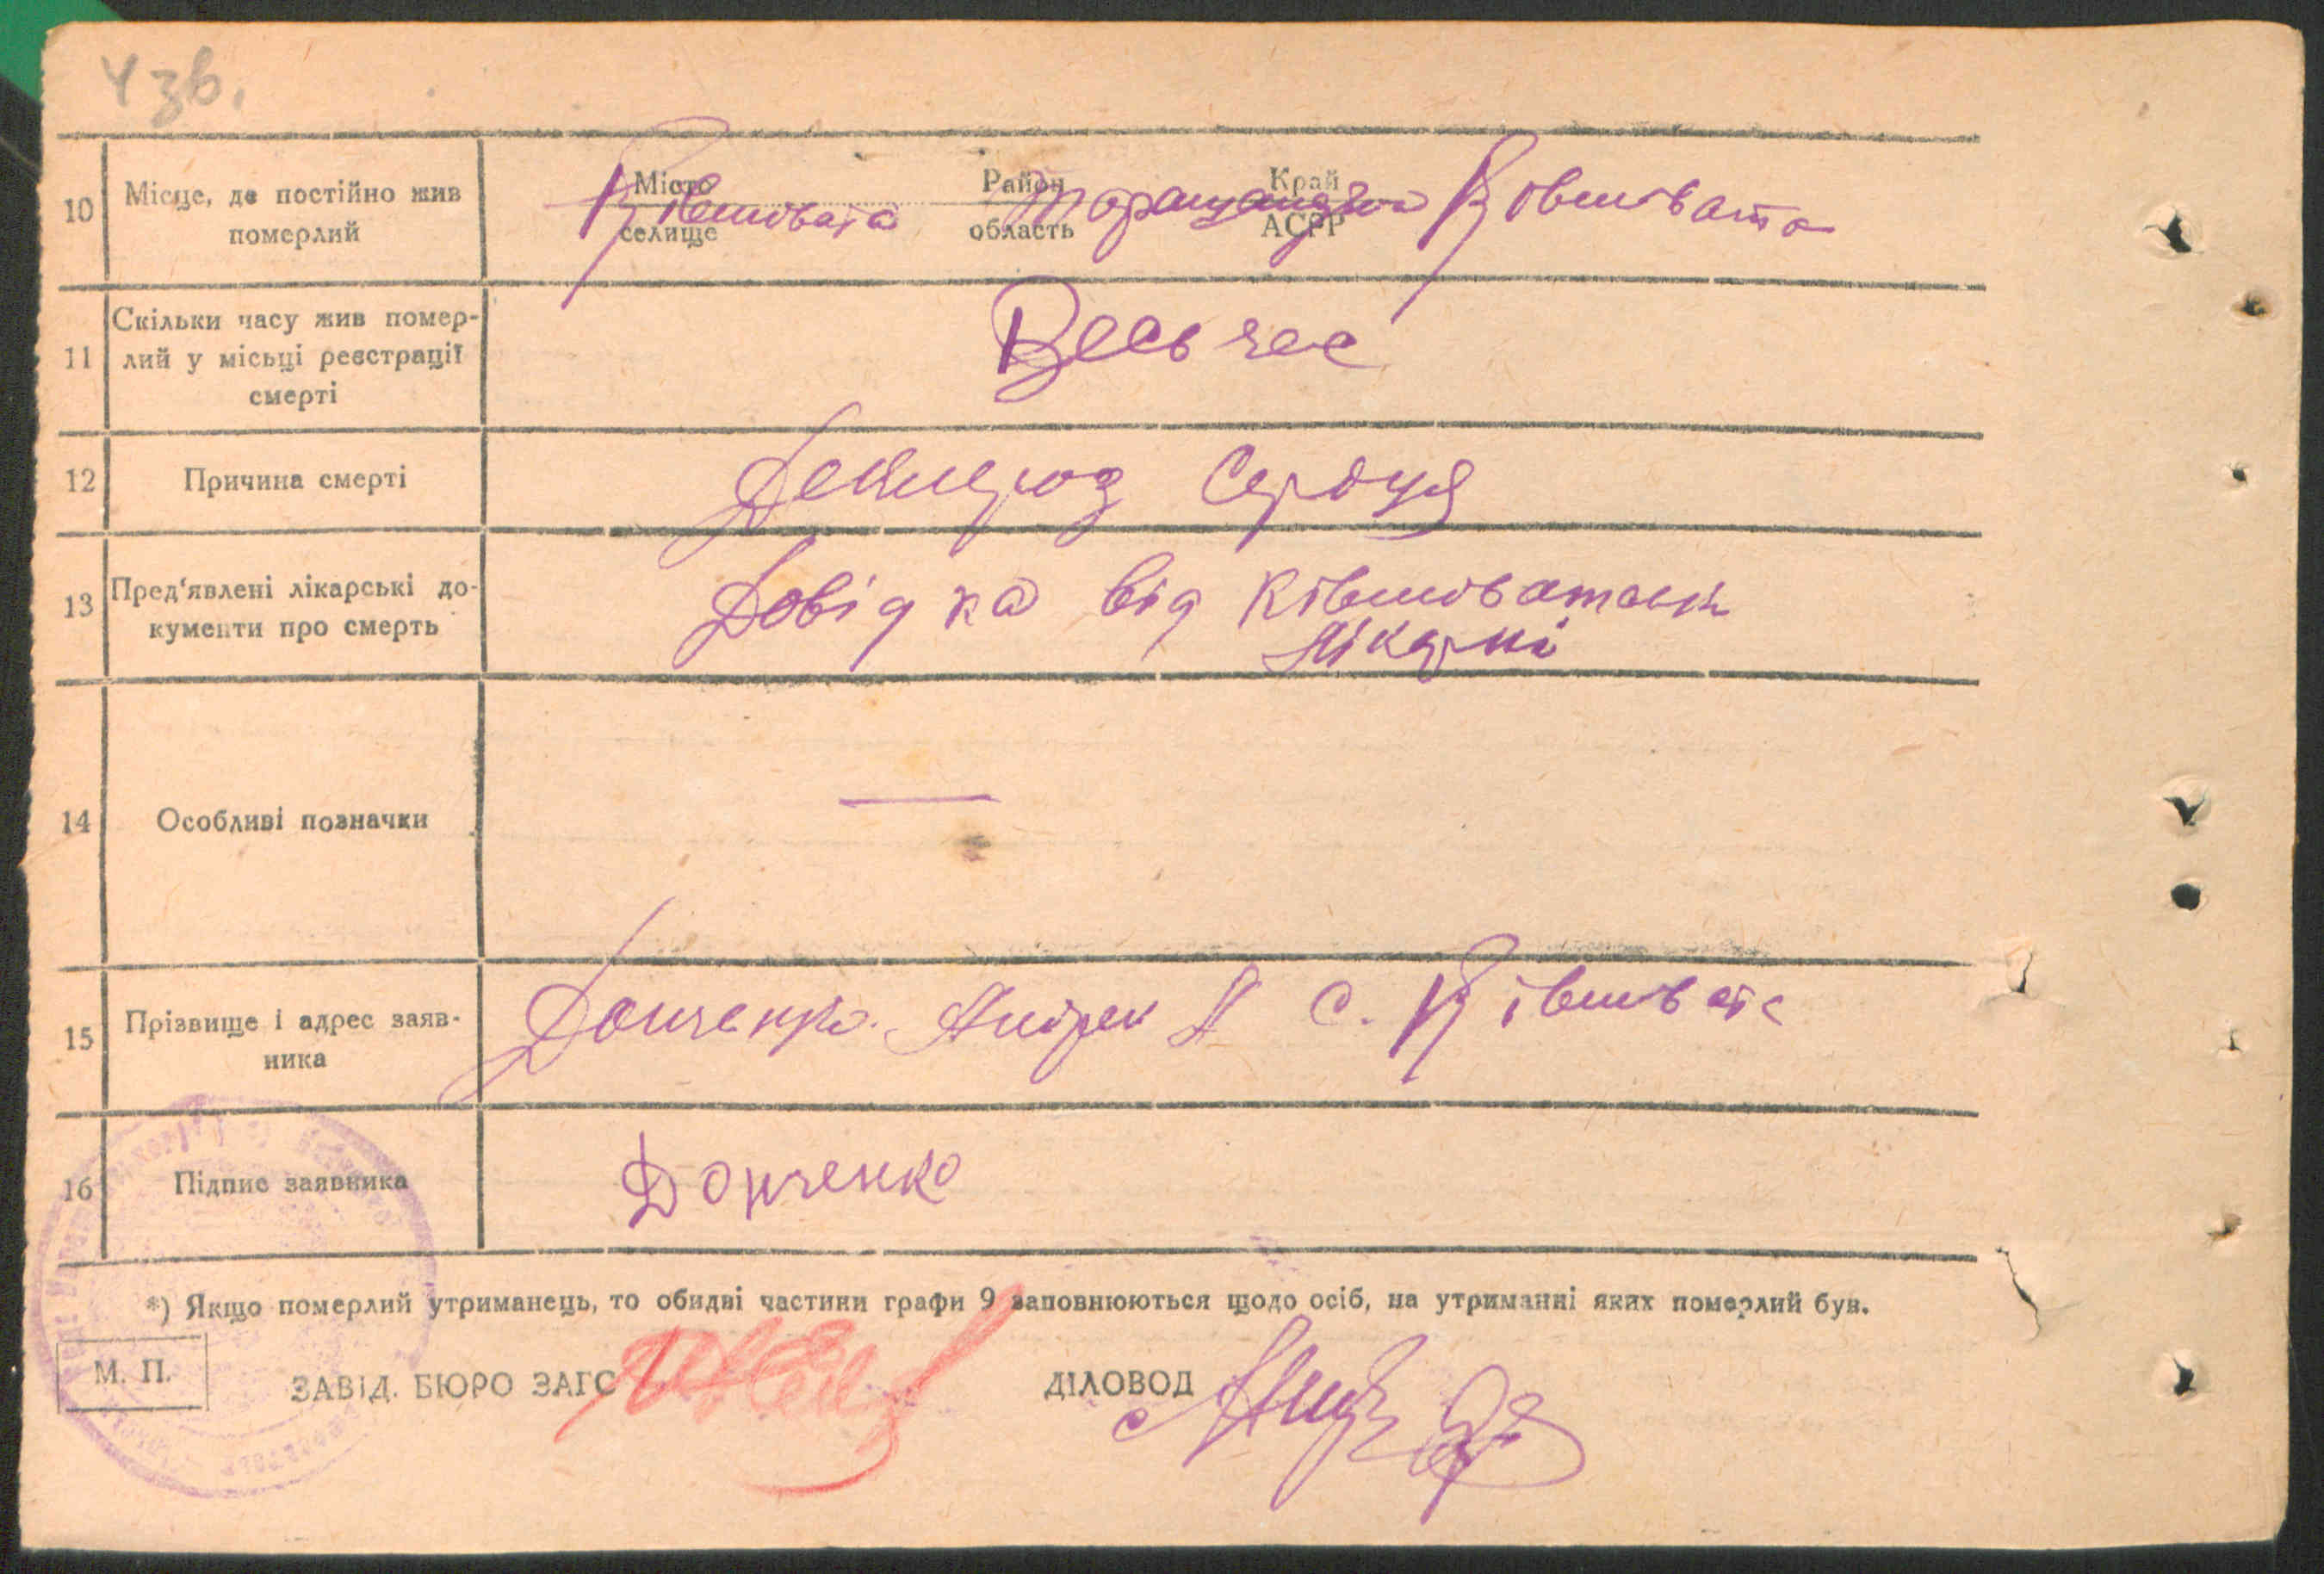 4 зв.
10 Місце, де постійно жив померлий
Місто селище Район область Край АСРР
Ківшовата Таращанська Ківшовата
11 Скільки часу жив помер-
лий у місьці реєстрації
смерті
Весь час
12 Причина смерті
сердця
13 Пред'явлені лікарські до-
кументи про смерть
Довідка від Ківшоватськ
лікарні
14 Особливі позначки
—
15 Прізвище і адрес заяв-
ника
Донченко Андрей А с. Ківшовата
16 Підпис заявника
Донченко
*) Якщо померлий утриманець, то обидві частини графи 9 заповнюються щодо осіб, на утриманні яких померлий був.
М. П.
ЗАВІД. БЮРО ЗАГС
ДІЛОВОД